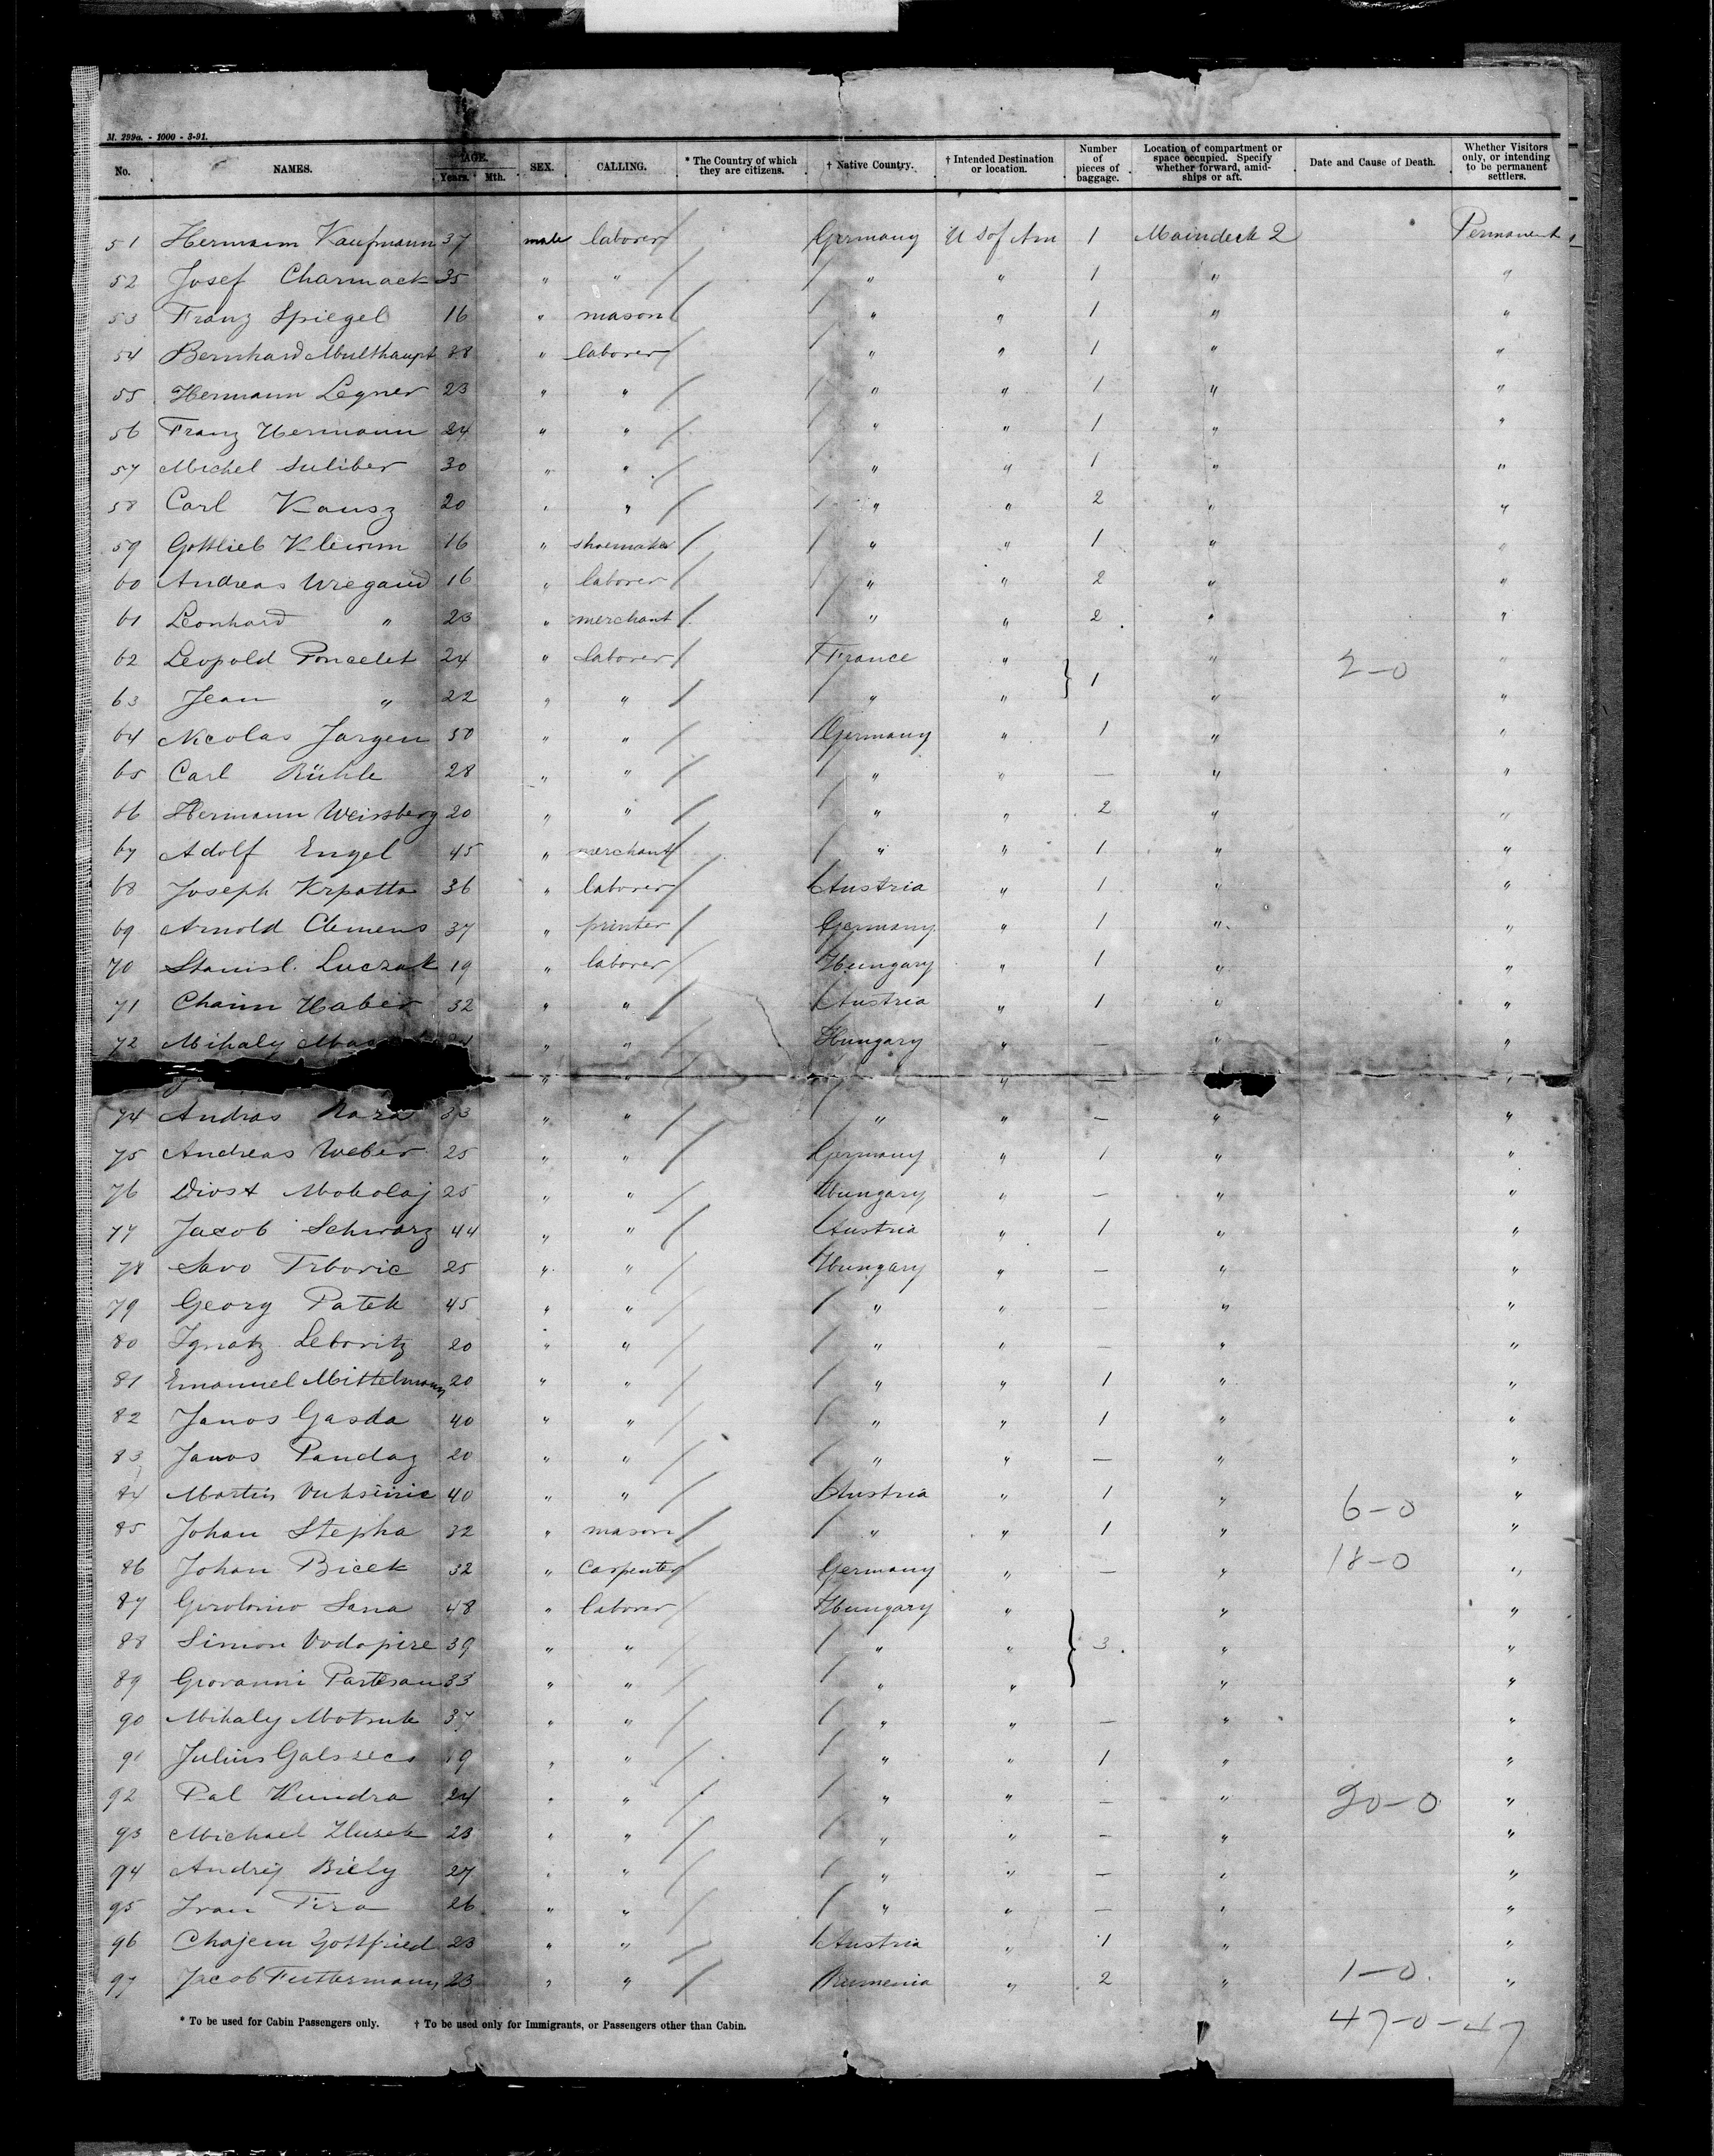 M. 299a. - 1000 - 3-91.
No. NAMES. AGE. Years. Mth. SEX. CALLING. * The Country of which they are citizens. † Native Country. † Intended Destination or location. Number of pieces of baggage. Location of compartment or space occupied. Specify whether forward, amidships or aft. Date and Cause of Death. Whether Visitors only, or intending to be permanent settlers.
51 Hermann Kaufmann 37 male laborer Germany U S of Am 1 Maindeck 2 Permanent
52 Josef Charmack 35 " " " " 1 " "
53 Franz Spiegel 16 " mason " " 1 " "
54 Bernhard Multhaupt 28 " laborer " " 1 " "
55 Hermann Legner 23 " " " " 1 " "
56 Franz Hermann 24 " " " " 1 " "
57 Michel Suliber 30 " " " " 1 " "
58 Carl Kausz 20 " " " " 2 " "
59 Gottlieb 16 " shoemaker " " 1 " "
60 Andreas Wiegand 16 " laborer " " 2 " "
61 Leonhard " 23 " merchant " " 2 " "
62 Leopold Poncelet 24 " laborer France " 1 " 2-0 "
63 Jean " 22 " " " " " "
64 Nicolas Jargen 30 " " Germany " 1 " "
65 Carl Rühle 28 " " " " — " "
66 Hermann Weissberg 20 " " " " 2 " "
67 Adolf Engel 45 " merchant " " 1 " "
68 Joseph Krpatta 36 " laborer Austria " 1 " "
69 Arnold Clemens 37 " printer Germany " 1 " "
70 Stanisl. Luczak 19 " laborer Hungary " 1 " "
71 Chaim Haber 32 " " Austria " 1 " "
72 Mihaly " " Hungary " — " "
" " " " — "
74 Andras 33 " " " " — " "
75 Andreas Weber 25 " " Germany " 1 " "
76 Diost Mokolaj 25 " " Hungary " — " "
77 Jacob Schwarz 44 " " Austria " 1 " "
78 Savo Trbovic 25 " " Hungary " — " "
79 Georg Patek 45 " " " " — " "
80 Ignatz Lebovitz 20 " " " " — " "
81 Emanuel Mittelmann 20 " " " " 1 " "
82 Janos Gasda 40 " " " " 1 " "
83 Janos Pandaz 20 " " " " — " "
84 Martin Vuksinic 40 " " Austria " 1 " 6-0 "
85 Johan Stepha 32 " mason " " 1 " "
86 Johan Bicek 32 " carpenter Germany " — " 18-0 "
87 Girolomo Sana 48 " laborer Hungary " " "
88 Simon Vodopire 39 " " " " 3 " "
89 Giovanni Partesan 33 " " " " " "
90 Mihaly Motsuk 37 " " " " — " "
91 Julius 19 " " " " 1 " "
92 Pal Kundra 24 " " " " — " 20-0 "
93 Michael Husek 23 " " " " — " "
94 Andrej Biely 27 " " " " — " "
95 Ivan Tira 26 " " " " — " "
96 Chajem Gottfried 23 " " Austria " 1 " "
97 Jacob Futtermann 23 " " Rumenia " 2 " 1-0 "
* To be used for Cabin Passengers only. † To be used only for Immigrants, or Passengers other than Cabin.
47-0-47